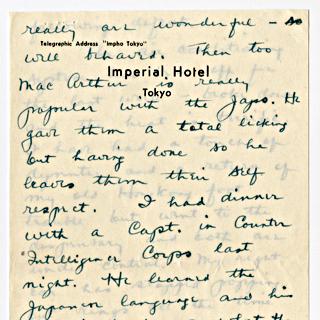 really are wonderful - so
Telegraphic Address "Impho Tokyo"
well behaved. Then too
Imperial Hotel
Mac Arthur is really
Tokyo
popular with the Japs. He
gave them a total licking
but having done so he
leaves them their self
respect. I had dinner
with a Capt. in Counter
Intelligence Corps last
night. He learned the
Japanese language and his